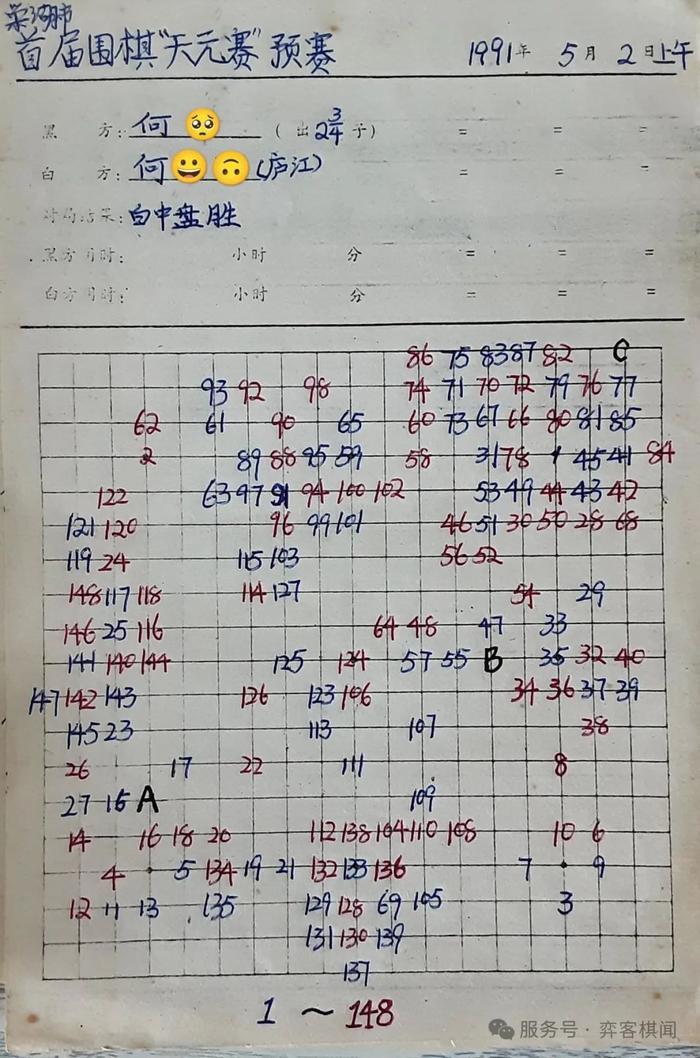 巢湖市
首届围棋"天元赛"预赛 1991年 5月 2日上午
黑方: 何🥺 (出2 3/4子) = = =
白方: 何😀🙃(庐江) = = =
对局结果: 白中盘胜
黑方用时: 小时 分 = = =
白方用时: 小时 分 = = =
86 75 83 87 82 C
93 92 98 74 71 70 72 79 76 77
62 61 90 65 60 73 67 66 80 81 85
2 89 88 95 59 58 31 78 1 45 41 84
122 63 97 91 94 100 102 53 49 44 43 42
121 120 96 99 101 46 51 30 50 28 68
119 24 115 103 56 52
148 117 118 114 127 54 29
146 25 116 64 48 47 33
141 140 144 125 124 57 55 B 35 32 40
147 142 143 126 123 106 34 36 37 39
145 23 113 107 38
26 17 22 111 8
27 15 A 109
14 16 18 20 112 138 104 110 108 10 6
4 5 134 19 21 132 133 136 7 9
12 11 13 135 129 128 69 105 3
131 130 139
137
1 ～ 148
服务号 · 弈客棋闻